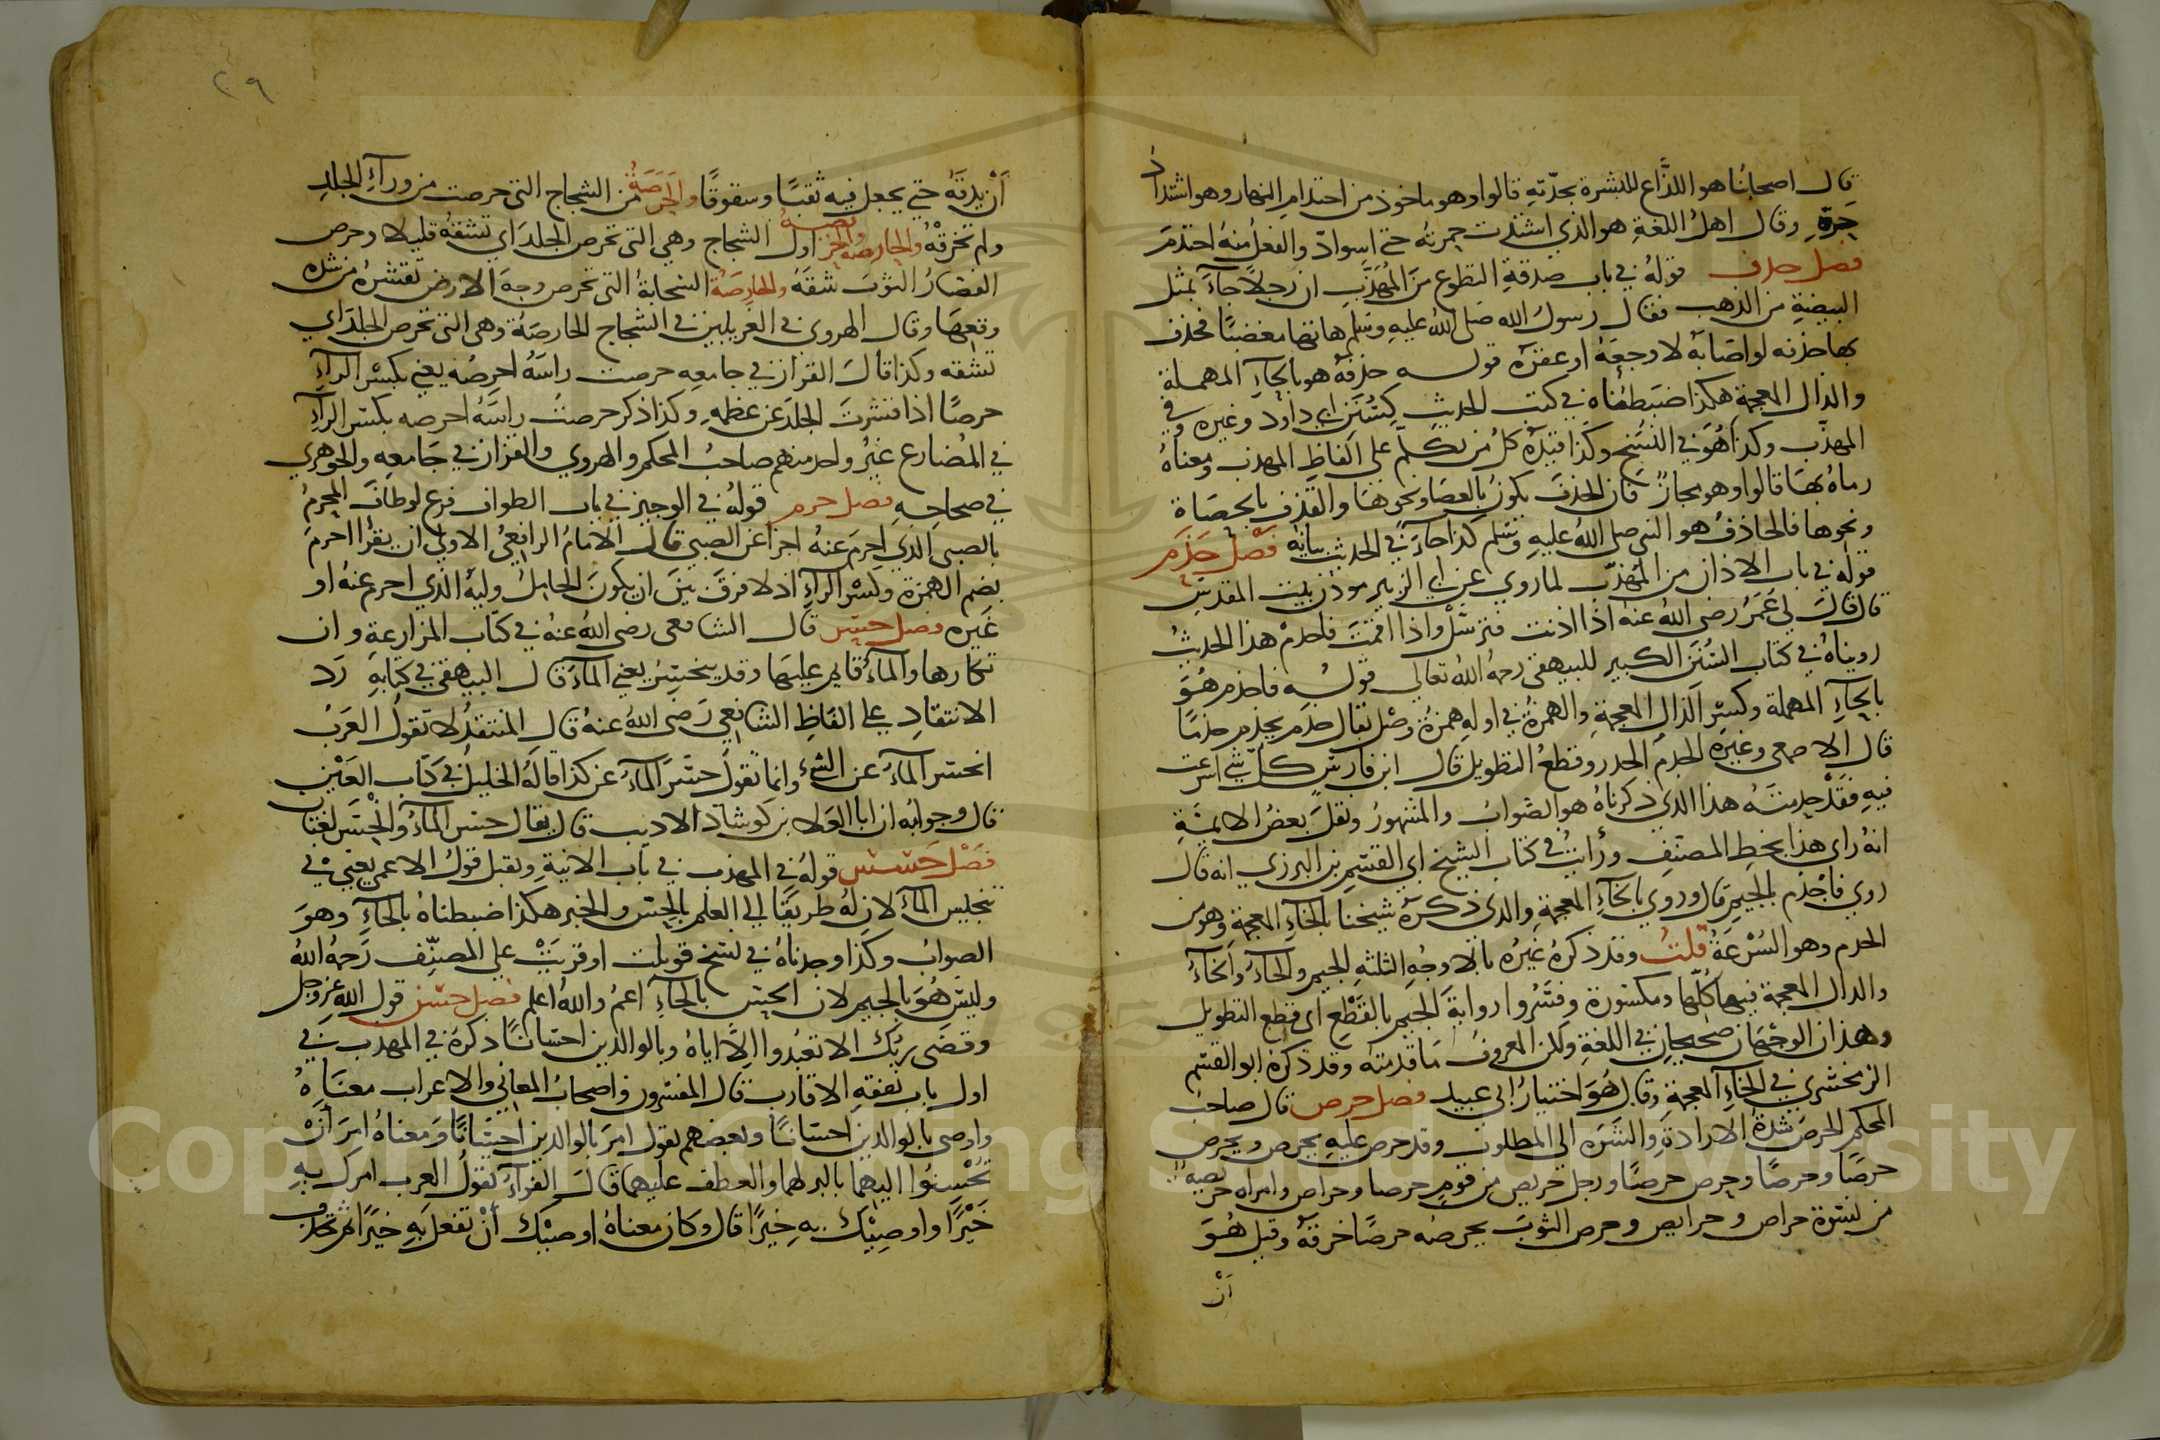 قال اصحابنا هو اللذاع للبشرة بحدته قالوا وهو ماخوذ من احتدام النهار وهو اشتداد
حره وقال اهل اللغة هو الذي اشتدت حمرته حتى اسواد والفعل منه احتدم
فصل حذف قوله في باب صدقة التطوع من المهذب ان رجلا جاء بمثل
البيضة من الذهب فقال رسول الله صلى الله عليه وسلم هاتها مغضبا فحذف
بها حذفة لو اصابه لاوجعه او عقره قوله حذفه هو بالحاء المهملة
والذال المعجمة هكذا ضبطناه في كتب الحديث كسنن ابي داود وغيره وفي
المهذب وكذا هو في النسخ وكذا قيده كل من تكلم على الفاظ المهذب ومعناه
رماه بها قالوا وهو مجاز فان الحذف يكون بالعصا ونحوها والقذف بالحصاة
ونحوها فالحاذف هو النبي صلى الله عليه وسلم كذا جاء في الحديث بيانه فصل حذم
قوله في باب الاذان من المهذب لما روي عن ابي الزبير موذن بيت المقدس
قال قال لي عمر رضي الله عنه اذا اذنت فترسل واذا اقمت فاحذم هذا الحديث
رويناه في كتاب السنن الكبير للبيهقي رحمه الله تعالى قوله فاحذم هو
بالحاء المهملة وكسر الذال المعجمة والهمزة في اوله همزة وصل يقال حذم يحذم حذما
قال الاصمعي وغيره الحذم الحدر وقطع التطويل قال ابن فارس كل شي اسرعت
فيه فقد حذمته هذا الذي ذكرناه هو الصواب والمشهور ونقل بعض الائمة
انه راي هذا بخط المصنف ورايت في كتاب الشيخ ابي القسم بن البرزي انه قال
روي فاجذم بالجيم قال وروي بالخاء المعجمة والذي ذكره شيخنا بالخاء المعجمة وهو من
الخذم وهو السرعة قلت وقد ذكره غيره بالاوجه الثلثه الجيم والحاء والخاء
والذال المعجمة فيها كلها ومكسورة وفسروا رواية الجيم بالقطع اي قطع التطويل
وهذان الوجهان صحيحان في اللغة ولكن المعروف ما قدمته وقد ذكره ابو القسم
الزمخشري في الخاء المعجمة وقال هو اختيار ابي عبيد فصل حرص قال صاحب
المحكم الحرص شدة الارادة والشره الى المطلوب وقد حرص عليه يحرص ويحرص
حرصا وحرصا وحرص حرصا ورجل حريص من قوم حرصا وحراص وامراه حريصه
من نسوة حراص وحرايص وحرص الثوب يحرصه حرصا خرقه وقيل هو
ان
٢٩
ان يدقه حتى يجعل فيه ثقبا وسقوقا والحرصة من الشجاج التي حرصت من وراء الجلد
ولم تخرقه والحارصة والحريصة اول الشجاج وهي التي تحرص الجلد اي تشقه قليلا وحرص
القصار الثوب شقه والحارصة السحابة التي تحرص وجه الارض تقشره من شدة
وقعها وقال الهروي في الغريبين في الشجاج الحارصة وهي التي تحرص الجلد اي
تشقه وكذا قال القزاز في جامعه حرصت راسه احرصه يعني بكسر الراء
حرصا اذا قشرت الجلد عن عظمه وكذا ذكر حرصت راسه احرصه بكسر الراء
في المضارع غير واحد منهم صاحب المحكم والهروي والقزاز في جامعه والجوهري
في صحاحه فصل حرم قوله في الوجيز في باب الطواف فرع لو طاف المحرم
بالصبي الذي احرم عنه اجزا عن الصبي قال الامام الرافعي الاولى ان يقرا احرم
بضم الهمزة وكسر الراء اذ لا فرق بين ان يكون الحامل وليه الذي احرم عنه او
غيره فصل حسر قال الشافعي رضي الله عنه في كتاب المزارعة وان
تكارها والماء قايم عليها وقد ينحسر يعني الماء قال البيهقي في كتابه رد
الانتقاد على الفاظ الشافعي رضي الله عنه قال المنتقد لا تقول العرب
انحسر الماء عن الشيء وانما تقول حسر الماء عن كذا قاله الخليل في كتاب العين
قال وجوابه ان ابا العلا بن كوشاد الاديب قال يقال حسر الماء وانحسر لغتان
فصل حسس قوله في المهذب في باب الانية ويقبل قول الاعمى يعني في
تنجيس الماء لان له طريقا الى العلم بالحس والخبر هكذا ضبطناه بالحاء وهو
الصواب وكذا وجدناه في نسخ قوبلت او قريت على المصنف رحمه الله
وليس هو بالجيم لان الحس بالحاء اعم والله اعلم فصل حسن قول الله عز وجل
وقضى ربك الا تعبدوا الا اياه وبالوالدين احسانا ذكره في المهذب في
اول باب نفقة الاقارب قال المفسرون واصحاب المعاني والاعراب معناه
واوصى بالوالدين احسانا وبعضهم يقول امر بالوالدين احسانا ومعناه امر ان
تحسنوا اليهما بالبر لهما والعطف عليهما قال الفراء تقول العرب امرك به
خيرا واوصيك به خيرا قال وكان معناه اوصيك ان تفعل به خيرا ثم تحذف